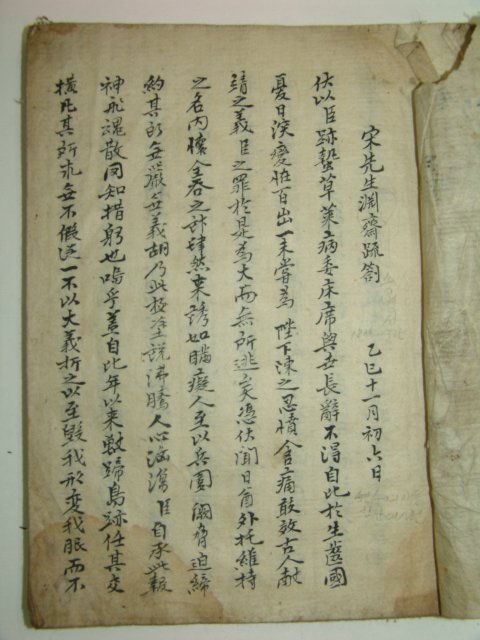 宋先生淵齋疏劄 乙巳十一月初六日
伏以臣跡蟄草萊病委床席與世長辭不得自比於生齒國
憂日深變怪百出一未嘗爲 陛下陳之忍憤含痛敢效古人獻
靖之義臣之罪於是爲大而無所逃矣憑伏聞日酋外托維持
之名內懷全吞之計肆然來誘如瞞癡人至以兵圍 闕脅迫締
約其所無嚴無義胡乃至此極羣說沸騰人心洶湧臣自承此報
神飛魂散罔知措躬也嗚乎蓋自比年以來獸蹄鳥跡任其交
橫凡其所求無不假區一不以大義折之以至毁我形變我服而不